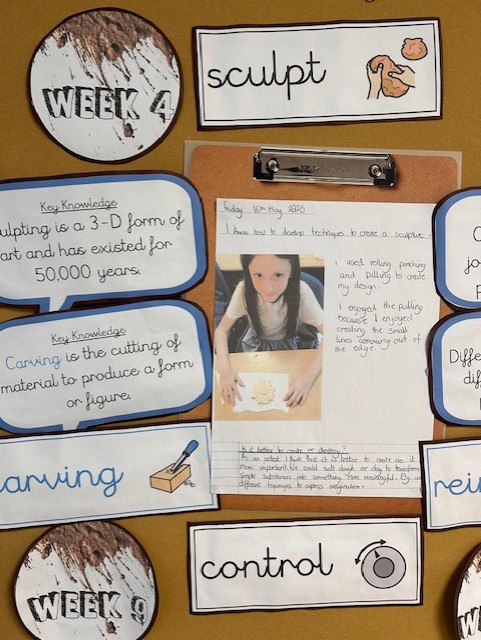 WEEK 4
sculpt
Key Knowledge
ulpting is a 3-D form of
art and has existed for
50,000 years.
Key Knowledge
Carving is the cutting of
material to produce a form
or figure.
arving
WEEK 9
Friday 16th May 2025
I know how to develop techniques to create a sculpture.
I used rolling, pinching
and pulling to create
my design.
I enjoyed the pulling
because I enjoyed
creating the small
lines coming out of
the edge.
Is it better to create or destroy?
As an artist I think that it is better to create as it
more important. We could salt dough or clay to transform
simple substances into something more meaningful. By
different techniques to express imagination.
control
C
jo
p
Diffe
dif
rei
W